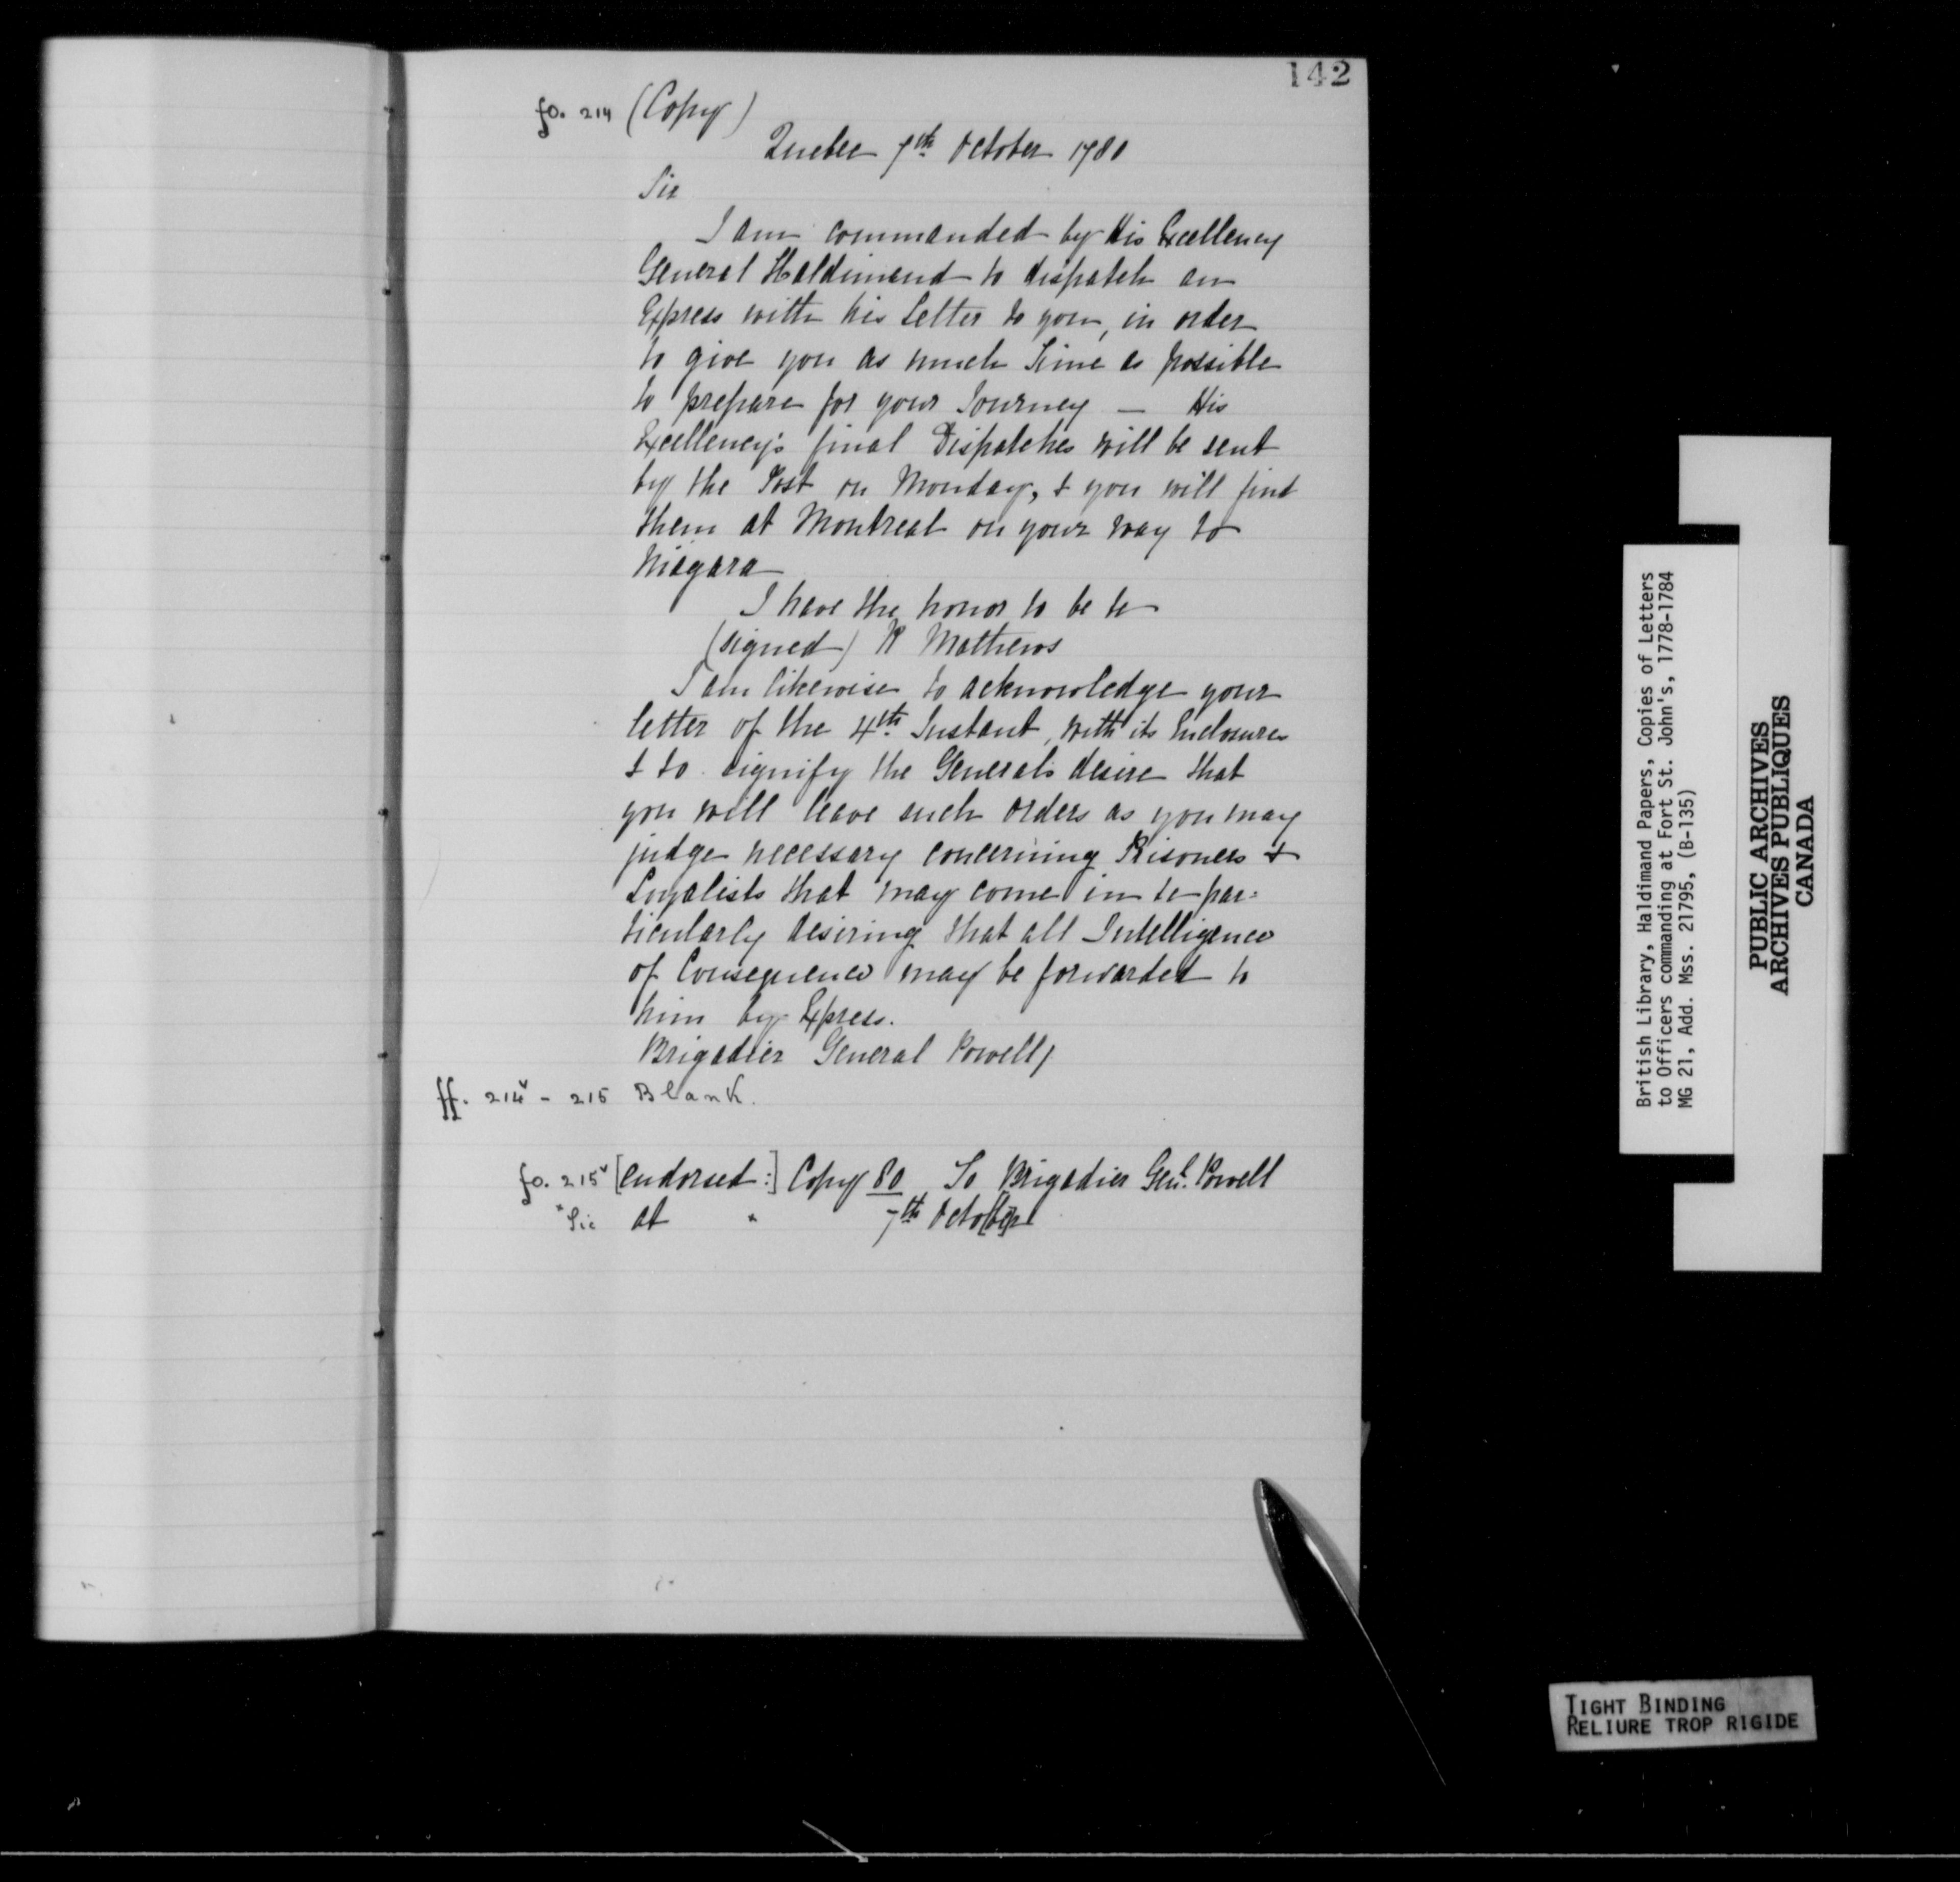 142
fo. 214 (Copy)
Quebec 7th October 1780
Sir
I am commanded by His Excellency
General Haldimand to dispatch an
Express with his Letter to you, in order
to give you as much Time as possible
to prepare for your Journey — His
Excellency's final Dispatches will be sent
by the Post on Monday, & you will find
them at Montreal on your way to
Niagara
I have the honor to be &c
(signed) R Mathews
I am likewise to acknowledge your
letter of the 4th Instant, with its Enclosures
& to signify the General's desire that
you will leave such orders as you may
judge necessary concerning Prisoners &
Loyalists that may come in &c par=
ticularly desiring that all Intelligence
of Consequence may be forwarded to
him by Express.
Brigadier General Powell/
ff. 214v - 215 Blank.
fo. 215v [endorsed:] Copy 80 To Brigadier Genl. Powell
*Sic at * 7th Octo[be]r
British Library, Haldimand Papers, Copies of Letters
to Officers commanding at Fort St. John's, 1778-1784
MG 21, Add. Mss. 21795, (B-135)
PUBLIC ARCHIVES
ARCHIVES PUBLIQUES
CANADA
TIGHT BINDING
RELIURE TROP RIGIDE